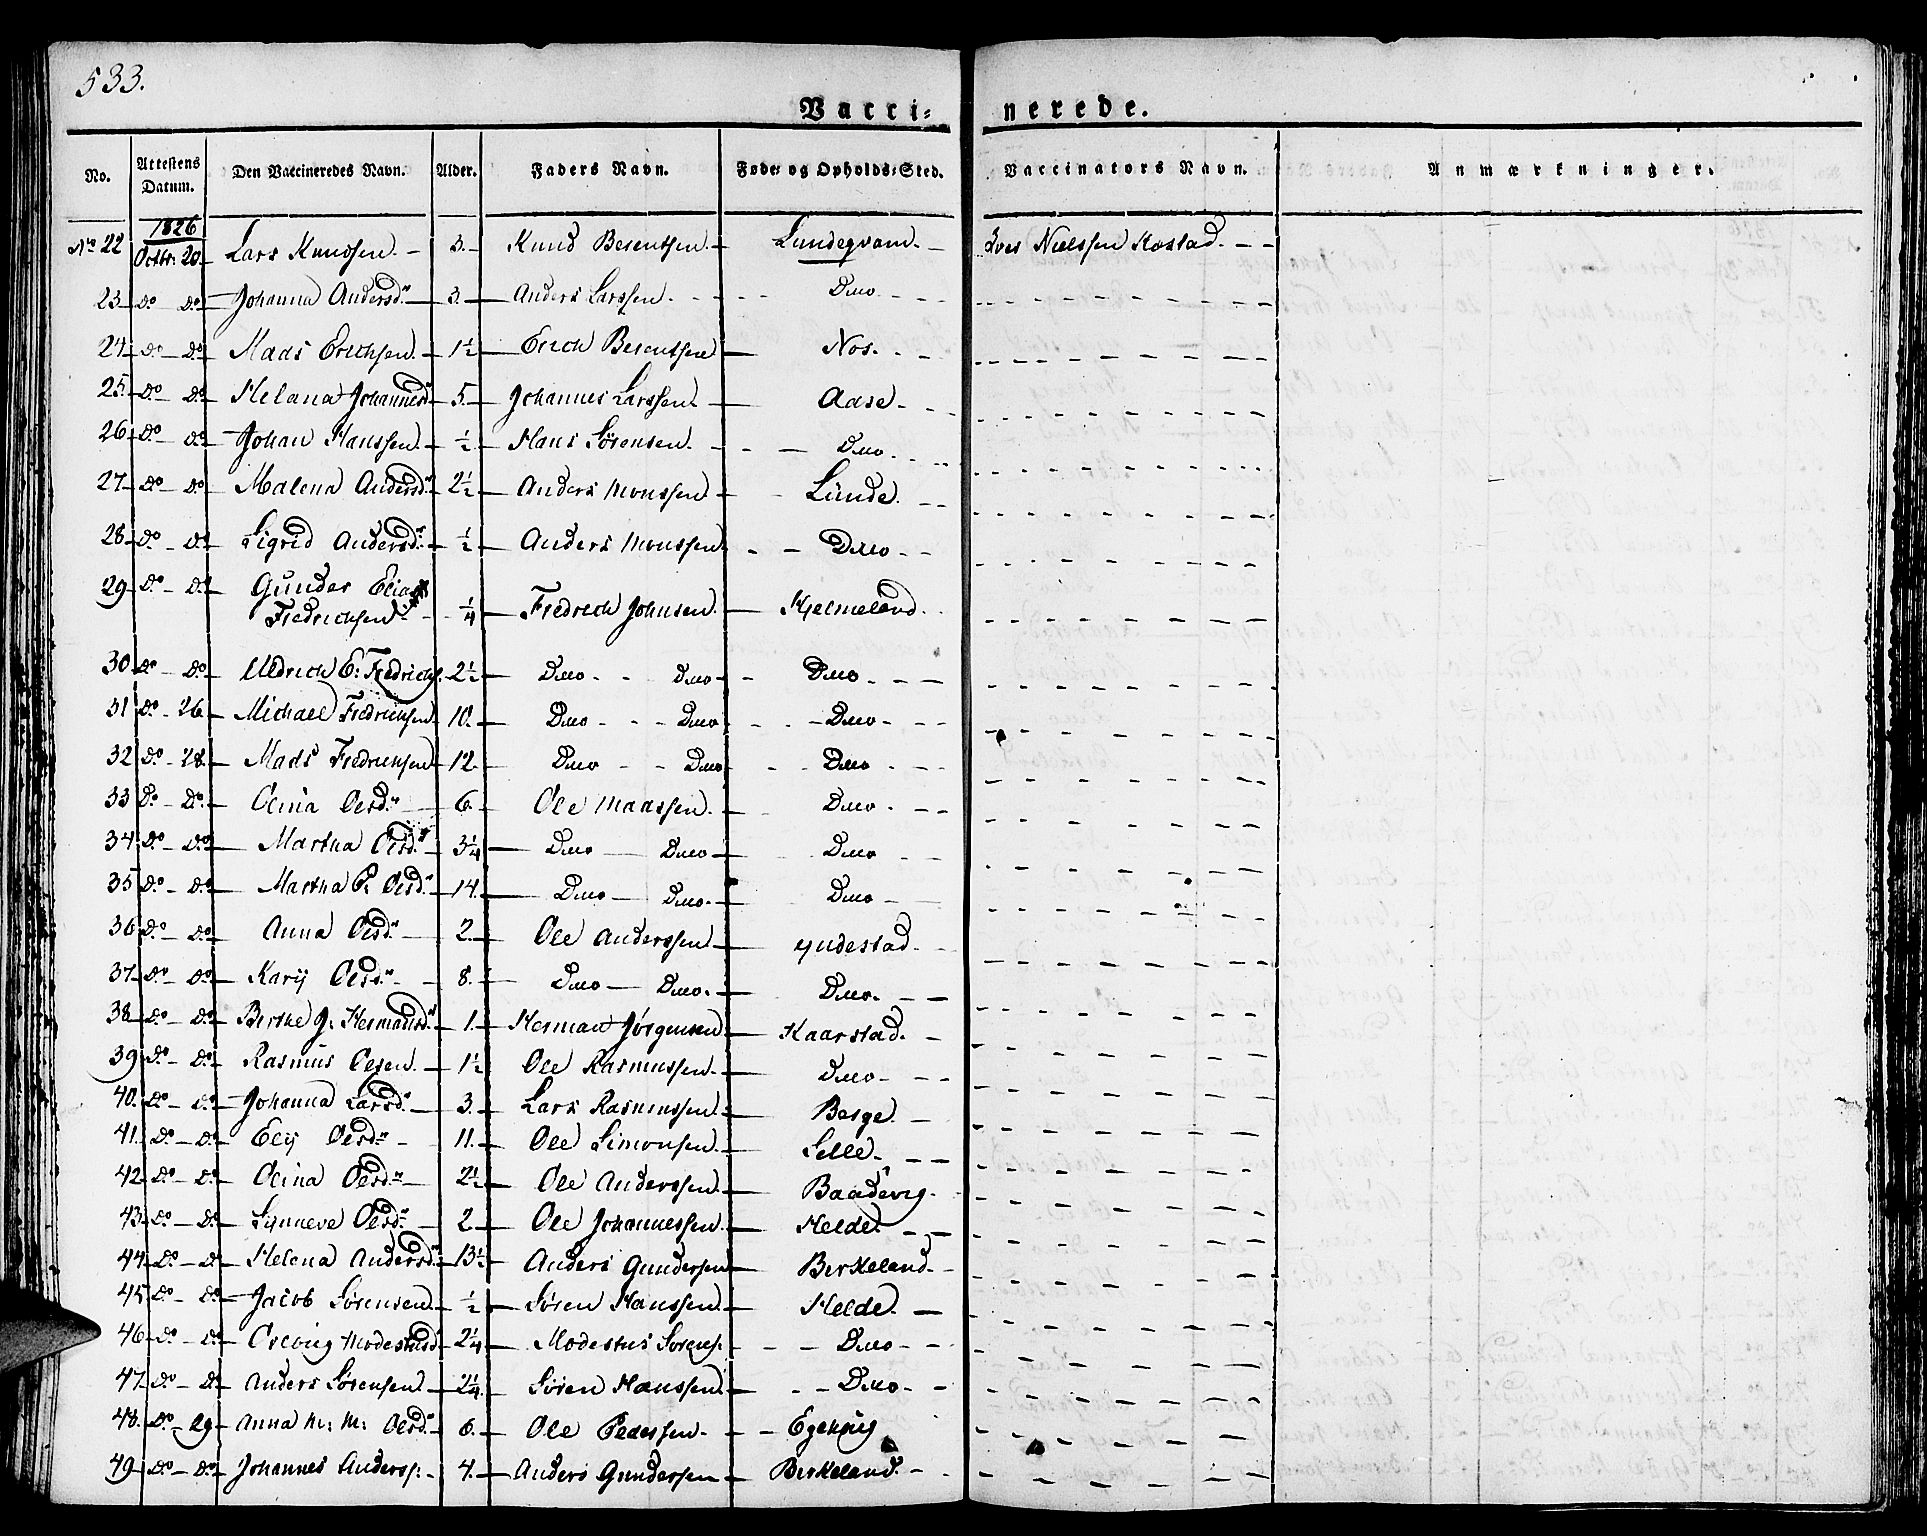 533.
Vacci= nerede.
No. Attestens Datum. Den Vaccineredes Navn. Alder. Faders Navn. Føde- og Opholds-Sted. Vaccinators Navn. Anmærkninger.
1826
No 22 Octbr: 20. Lars Knudsen. 3. Knud Berentsen. Lundeqvam. Nielssen Kostad.
23 Do Do Johanna Andersd. 3. Anders Larssen. Ditto
24 Do Do Mads Erichsen. 1½ Erich Berentsen Nos.
25 Do Do Helana Johannesd. 5. Johannes Larssen. Aase
26 Do Do Johan Hanssen. ½ Hans Sørensen. Ditto
27 Do Do Malena Andersd. 2½ Anders Monssen Lunde.
28 Do Do Sigrid Andersd. ½ Anders Monssen Ditto
29 Do Do Gunder Elias
Fredrichsen ¼ Fredrich Johnsen. Hjelmeland.
30 Do Do Uldrich E: Fredrichs. 2½ Ditto Ditto Ditto
31 Do 26 Michael Fredrichsen 10. Ditto Ditto Ditto
32 Do 28. Mads Fredrichsen 12 Ditto Ditto Ditto
33 Do Do Olina Olesd. 6 Ole Madssen. Ditto
34 Do Do Martha Olesd. 3¼ Ditto Ditto Ditto
35 Do Do Martha P. Olesd. 14. Ditto Ditto Ditto
36 Do Do Anna Olesd. 2 Ole Anderssen Yndestad.
37 Do Do Karij Olesd. 8. Ditto Ditto. Ditto.
38 Do Do Birthe J: Hermansd. 1. Herman Jørgensen Kaarstad.
39 Do Do Rasmus Olesen. 1½ Ole Rasmussen. Ditto
40. Do Do Johanna Larsd. 3. Lars Rasmussen. Berge
41. Do Do Elij Olesd. 11. Ole Simonsen. Selle.
42 Do Do Olina Olesd. 2½ Ole Anderssen. Baadevig.
43 Do Do Synneve Olesd. 2 Ole Johannessen. Helde.
44 Do Do Helena Andersd. 13½ Anders Gundersen Birkeland.
45 Do Do Jacob Sørensen. ½ Søren Hanssen. Helde.
46 Do Do Modestusd. 2¼ Modestus Sorens. Ditto
47 Do Do Anders Sørensen 2¼ Søren Hanssen. Ditto
48. Do 29 Anna M: M: Olesd. 6. Ole Pederssen.
49 Do Do Johannes Anderss: 4. Anders Gundersen Birkeland.